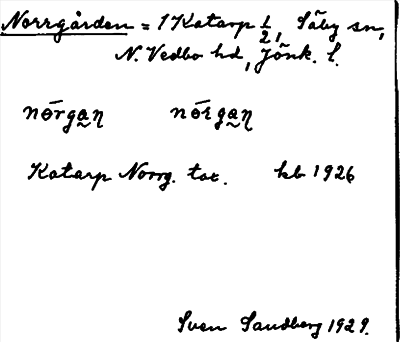 Norrgården = 1 Katarp 1/2, Säby sn,
N. Vedbo hd, Jönk. l.
nɵ̄rga̰ŋ nɵ̄rga̰ŋ
Katarp Norrg. tax. kb 1926
Sven Sandberg 1929.